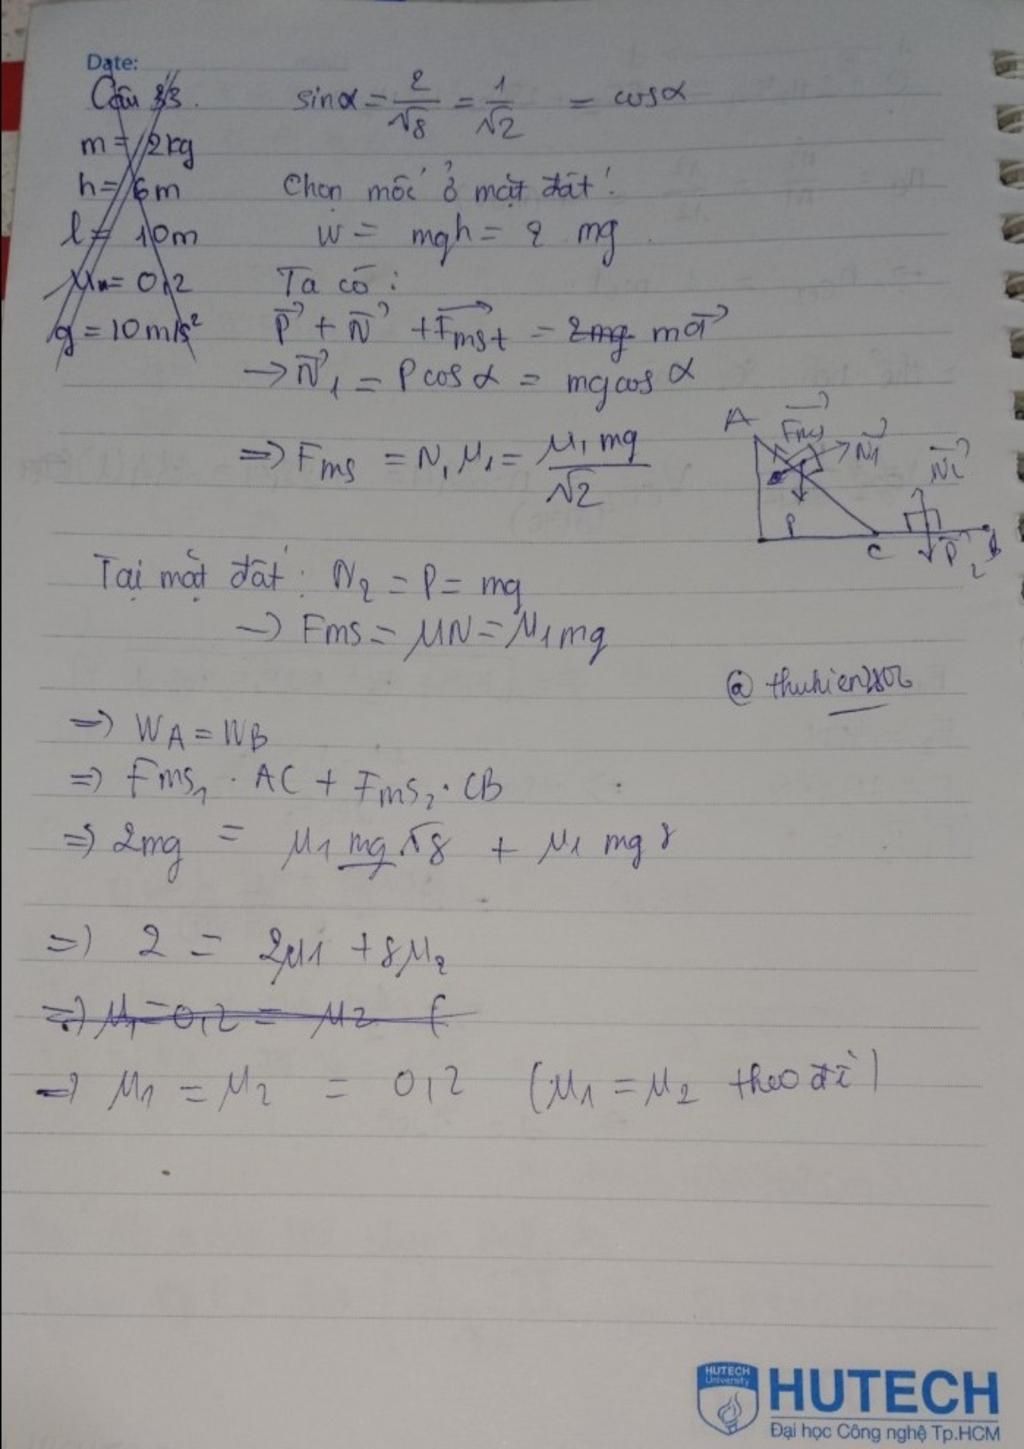 Date:
Câu 33.
m = 2kg
h = 6m
l = 10m
μn = 0,2
g = 10m/s²
sinα = 2/√8 = 1/√2 = cosα
Chọn mốc ở mặt đất:
W = mgh = 2 mg.
Ta có:
P⃗ + N⃗ + F⃗mst = 2mg ma⃗
→ N⃗1 = Pcosα = mgcosα
⇒ Fms = N1μ1 = μ1mg/√2
A
Fms
N⃗1
P
C
N⃗2
P⃗2
B
Tại mặt đất: N2 = P = mg
→ Fms = μN = μ1mg
@thuhien2802
⇒ WA = WB
⇒ Fms1 . AC + Fms2 . CB
⇒ 2mg = μ1 mg √8 + μ1 mg 8
⇒ 2 = 2μ1 + 8μ2
⇒ μ1 = 0,2 = μ2 (
⇒ μ1 = μ2 = 0,2 (μ1 = μ2 theo đề)
HUTECH
University
HUTECH
Đại học Công nghệ Tp.HCM